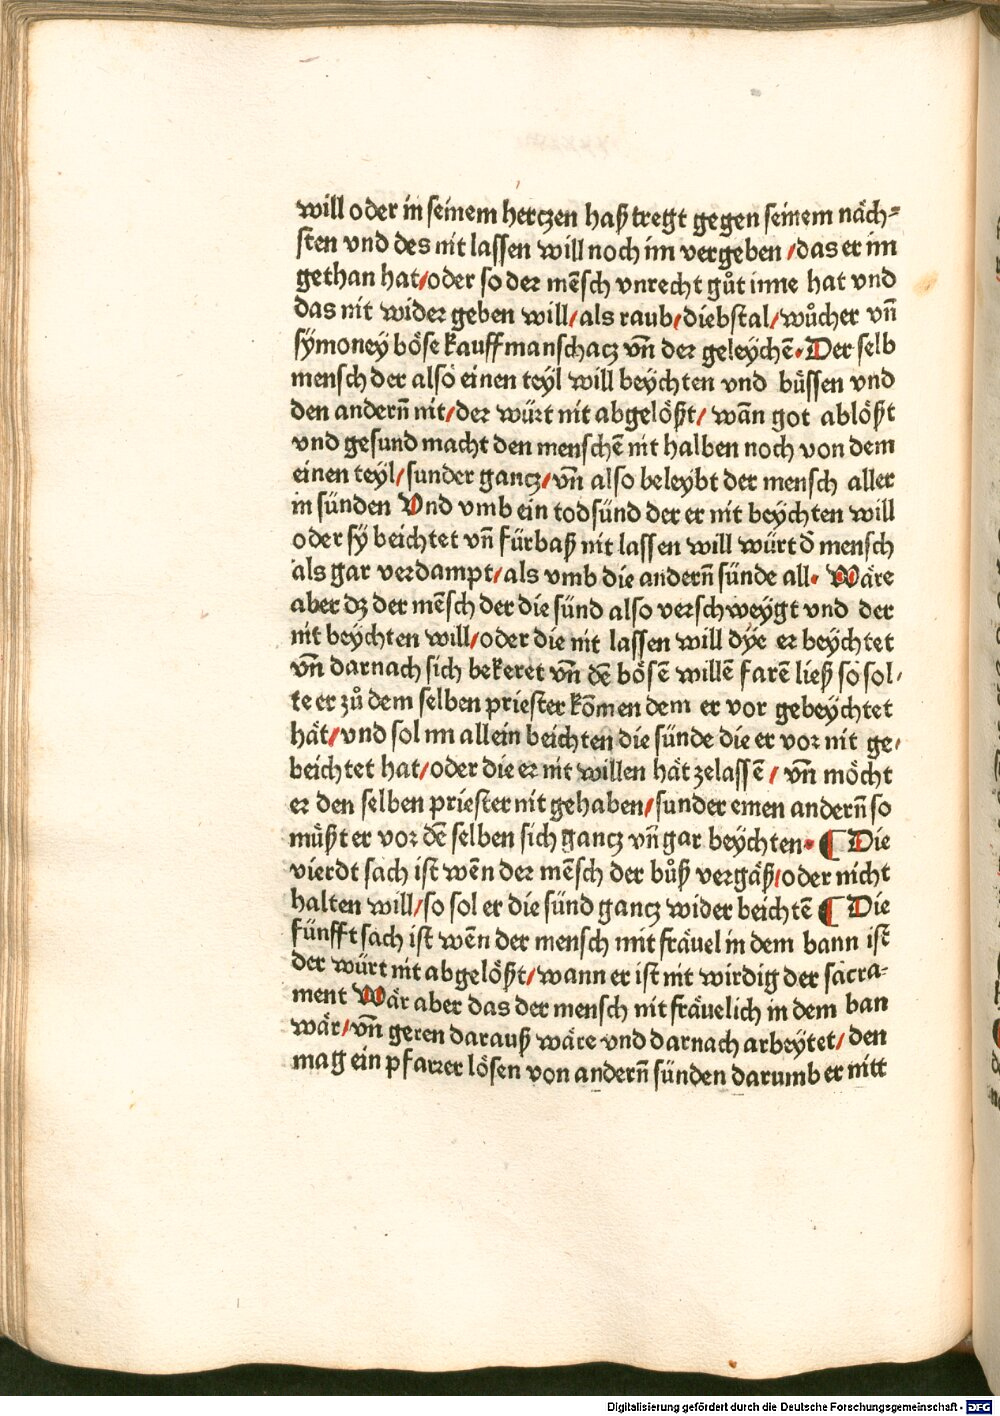 will oder in seinem hertzen haß tregt gegen seinem näch⸗
sten vnd des nit lassen will noch im vergeben / das er im
gethan hat / oder so der mẽsch vnrecht gůt inne hat vnd
das nit wider geben will / als raub / diebstal / wůcher vñ
sÿmoney böse kauffmanschacz vñ der geleÿchẽ. Der selb
mensch der also einen teÿl will beÿchten vnd büssen vnd
den anderñ nit / der würt nit abgelößt / wãn got ablößt
vnd gesund macht den menschẽ nit halben noch von dem
einen teÿl / sunder gancz / vñ also beleÿbt der mensch aller
in sünden Vnd vmb ein todsünd der er nit beÿchten will
oder sÿ beichtet vñ fürbaß nit lassen will würt d̄ mensch
als gar verdampt / als vmb die anderñ sünde all. Wäre
aber dz der mẽsch der die sünd also verschweÿgt vnd der
nit beÿchten will / oder die nit lassen will dÿe er beÿchtet
vñ darnach sich bekeret vñ dẽ bösẽ willẽ farẽ ließ so sol⸗
te er zů dem selben priester kõmen dem er vor gebeÿchtet
hät / vnd sol im allein beichten die sünde die er vor nit ge⸗
beichtet hat / oder die er nit willen hät zelassẽ / vñ möcht
er den selben priester nit gehaben / sunder einen anderñ so
müßt er vor dẽ selben sich gancz vñ gar beÿchten. ¶ Die
vierdt sach ist wẽn der mẽsch der bůß vergäß / oder nicht
halten will / so sol er die sünd gancz wider beichtẽ ¶ Die
fünfft sach ist wẽn der mensch mit fräuel in dem bann ist
der würt nit abgelößt / wann er ist nit wirdig der sacra⸗
ment Wär aber das der mensch nit fräuelich in dem ban
wär / vñ geren darauß wäre vnd darnach arbeÿtet / den
mag ein pfarrer lösen von anderñ sünden darumb er nitt
Digitalisierung gefördert durch die Deutsche Forschungsgemeinschaft - DFG